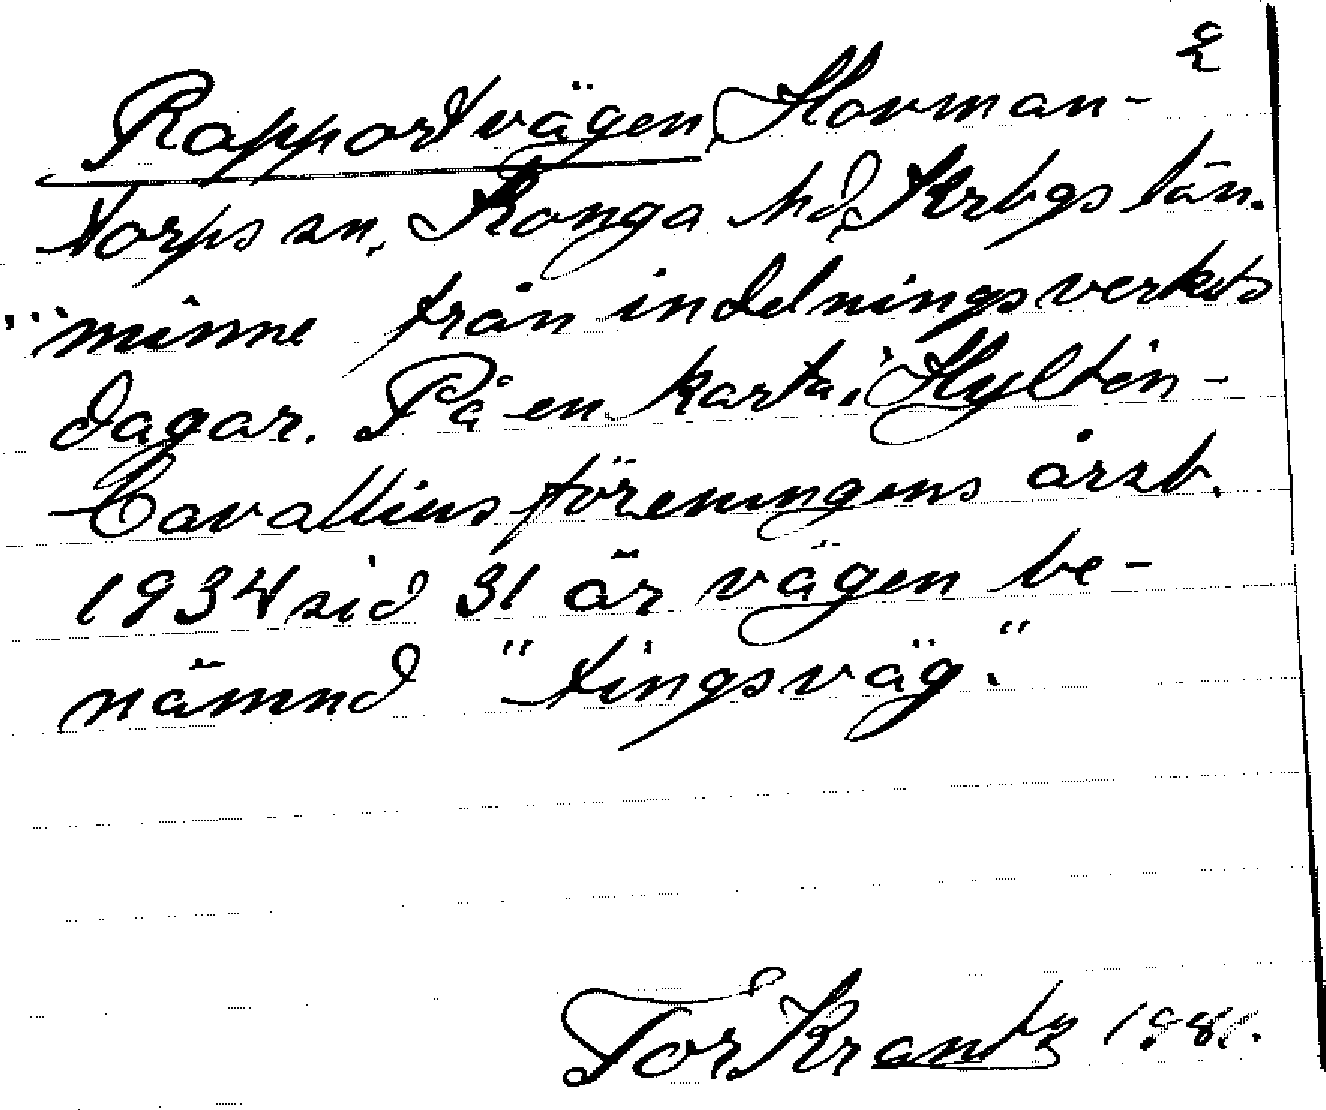 2
Rapportvägen, Hovman-
torps sn, Konga hd, Krbgs län.
minne från indelningsverkets
dagar. På en karta i Hyltén-
Cavalliusföreningens årsb.
1934 sid 31 är vägen be-
nämnd "tingsväg."
Tor Krantz 1981.